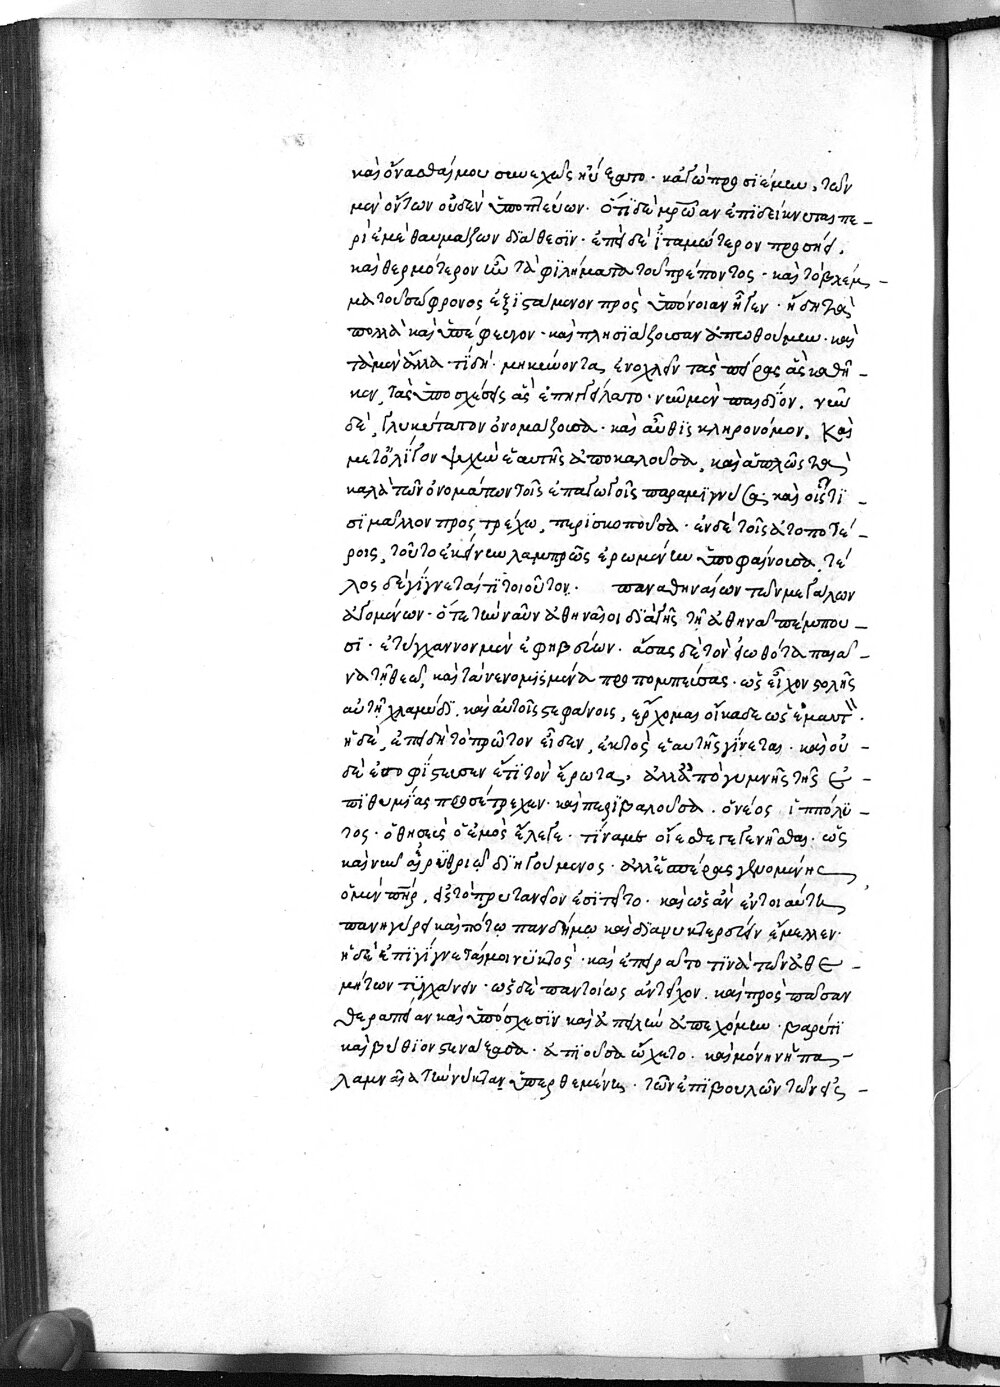 καὶ ὄνασθαί μου συνεχῶς ηὔχετο· κἀγὼ προσϊέμην, τῶν
μὲν ὄντων οὐδὲν ὑποπτεύων· ὅτι δὲ μητρῴαν ἐπιδείκνυται πε-
ρὶ ἐμὲ θαυμάζων διάθεσιν· ἐπεὶ δὲ ἰταμώτερον προσήει,
καὶ θερμότερον ἦν τὰ φιλήματα τοῦ πρέποντος· καὶ τὸ βλέμ-
μα τοῦ σώφρονος ἐξιστάμενον πρὸς ὑπόνοιαν ἦγεν· ἤδη τὰ
πολλὰ καὶ ὑπέφευγον· καὶ πλησιάζουσαν ἀπωθούμην· καὶ
τὰ μὲν ἄλλα τί δεῖ μηκύνοντα, ἐνοχλεῖν τὰς πείρας ἃς καθῆ-
κεν, τὰς ὑποσχέσεις ἃς ἐπηγγέλλετο· νῦν μὲν παιδίον, νῦν
δὲ, γλυκύτατον ὀνομάζουσα· καὶ αὖθις κληρονόμον, καὶ
μετ' ὀλίγον ψυχὴν ἑαυτῆς ἀποκαλοῦσα, καὶ ἁπλῶς τὰ
καλὰ τῶν ὀνομάτων τοῖς ἐπαγωγοῖς παραμιγνῦσα· καὶ οἷς τί-
σι μᾶλλον προστρέχω, περισκοποῦσα· ἐν δὲ τοῖς ἀτοπωτέ-
ροις, τοῦτο ἐκείνην λαμπρῶς ἐρωμένην ὑποφαίνουσα, τέ-
λος δὲ γίγνεταί τι τοιοῦτον. παναθηναίων τῶν μεγάλων
ἀγομένων· ὅτε τὴν ναῦν ἀθηναῖοι διὰ γῆς τῇ ἀθηνᾷ πέμπου-
σι· ἐτύγχανον μὲν ἐφηβεύων· ᾄσας δὲ τὸν εἰωθότα παιᾶ-
να τῇ θεῷ, καὶ τὰ νενομισμένα προπομπεύσας· ὡς εἶχον στολῆς
αὐτῇ χλαμύδι, καὶ αὐτοῖς στεφάνοις, ἔρχομαι οἴκαδε ὡς ἐμαυτ·
ἡ δὲ, ἐπειδὴ τὸ πρῶτον εἶδεν, ἐκτὸς ἑαυτῆς γίνεται· καὶ οὐ-
δὲ ἐσοφίστευσεν ἔτι τὸν ἔρωτα, ἀλλ' ἀπὸ γυμνῆς τῆς ἐ-
πιθυμίας προσέτρεχεν· καὶ περιβαλοῦσα, ὁ νέος ἱππόλυ-
τος· ὁ θησεὺς ὁ ἐμὸς ἔλεγε· τίνα με οἴεσθε γεγενῆσθαι· ὡς
καὶ νῦν ἐρυθριῶ διηγούμενος· ἀλλ' ἑσπέρας γενομένης
ὁ μὲν πατὴρ, εἰς τὸ πρυτανεῖον ἐσιτεῖτο· καὶ ὡς ἂν ἐν τοιαύτῃ
πανηγύρει καὶ πότῳ πανδήμῳ καὶ διανυκτερεύειν ἔμελλεν·
ἡ δὲ ἐπιγίγνεταί μοι νύκτος· καὶ ἐπειρᾶτό τινα τῶν ἀθε-
μίτων τυγχάνειν· ὡς δὲ παντοίως ἀντεῖχον, καὶ πρὸς πᾶσαν
θεραπείαν καὶ ὑπόσχεσιν καὶ ἀπειλὴν ἀπεμαχόμην· βαρύ τι
καὶ βύθιον στενάξασα· ἀπιοῦσα ᾤχετο· καὶ μόνην ἡ πα-
λαμναία τὴν νύκταν ὑπερθεμένη, τῶν ἐπιβουλῶν τῶν εἰς-